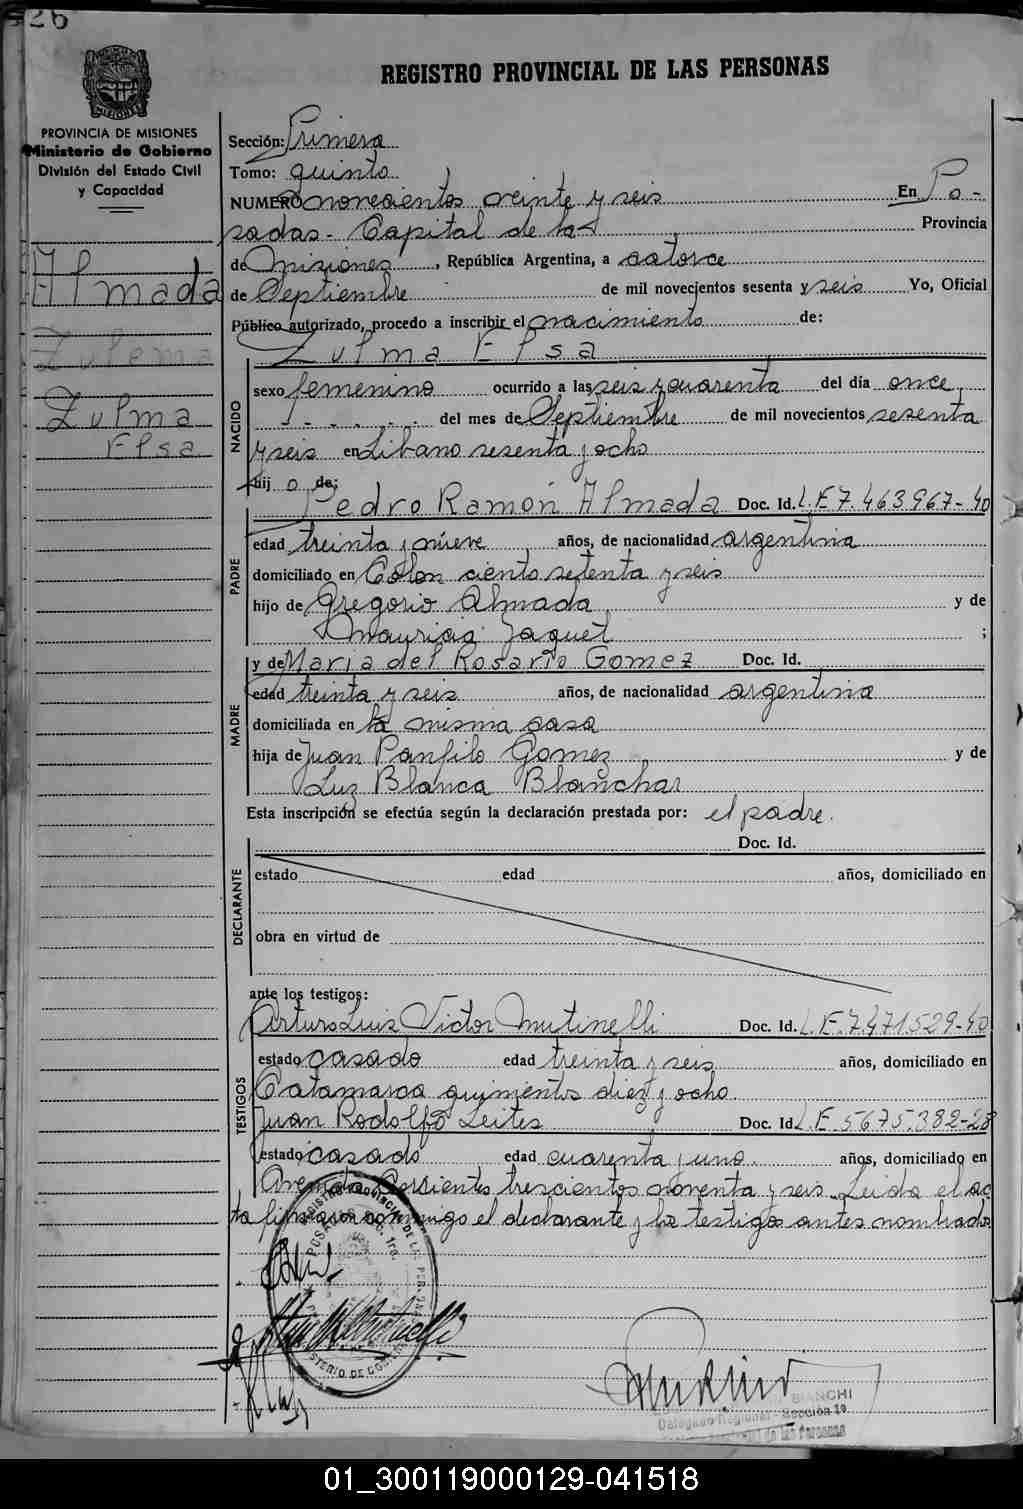 26
REGISTRO PROVINCIAL DE LAS PERSONAS
MISIONES
PROVINCIA DE MISIONES
Ministerio de Gobierno
División del Estado Civil
y Capacidad
Almada
Zulema
Zulma
Elsa
Sección: Primera
Tomo: quinto
NUMERO novecientos veinte y seis En Po-
sadas - Capital de la Provincia
de Misiones, República Argentina, a catorce
de Septiembre de mil novecientos sesenta y seis Yo, Oficial
Público autorizado, procedo a inscribir el nacimiento de:
Zulma Elsa
NACIDO
sexo femenino ocurrido a las seis y cuarenta del día once
- - - - - - del mes de Septiembre de mil novecientos sesenta
y seis en Libano sesenta y ocho
hij o de:
Pedro Ramón Almada Doc. Id. L.E.7.463.967-40
PADRE
edad treinta y nueve años, de nacionalidad argentina
domiciliado en Colon ciento setenta y seis
hijo de Gregorio Almada y de
Mauricia Jaquet ;
y de Maria del Rosario Gomez Doc. Id.
MADRE
edad treinta y seis años, de nacionalidad argentina
domiciliada en la misma casa
hija de Juan Panfilo Gomez y de
Luz Blanca Blanchar
Esta inscripción se efectúa según la declaración prestada por: el padre.
Doc. Id.
DECLARANTE
estado edad años, domiciliado en
obra en virtud de
ante los testigos:
Arturo Luis Victor Mutinelli Doc. Id. L.E.7.471529-40
TESTIGOS
estado casado edad treinta y seis años, domiciliado en
Catamarca quinientos diez y ocho.
Juan Rodolfo Leites Doc. Id. L.E.5675.382-28
estado casado edad cuarenta y uno. años, domiciliado en
Avenida Corrientes trescientos noventa y seis. Leida el ac
ta firmaron conmigo el declarante y los testigos antes nombrados
REGISTRO PROVINCIAL DE LAS PER
POSADAS SEC. 1ra.
MINISTERIO DE GOBIERNO
BIANCHI
Delegado Regional - Sección 1a
de las Personas
01_300119000129-041518